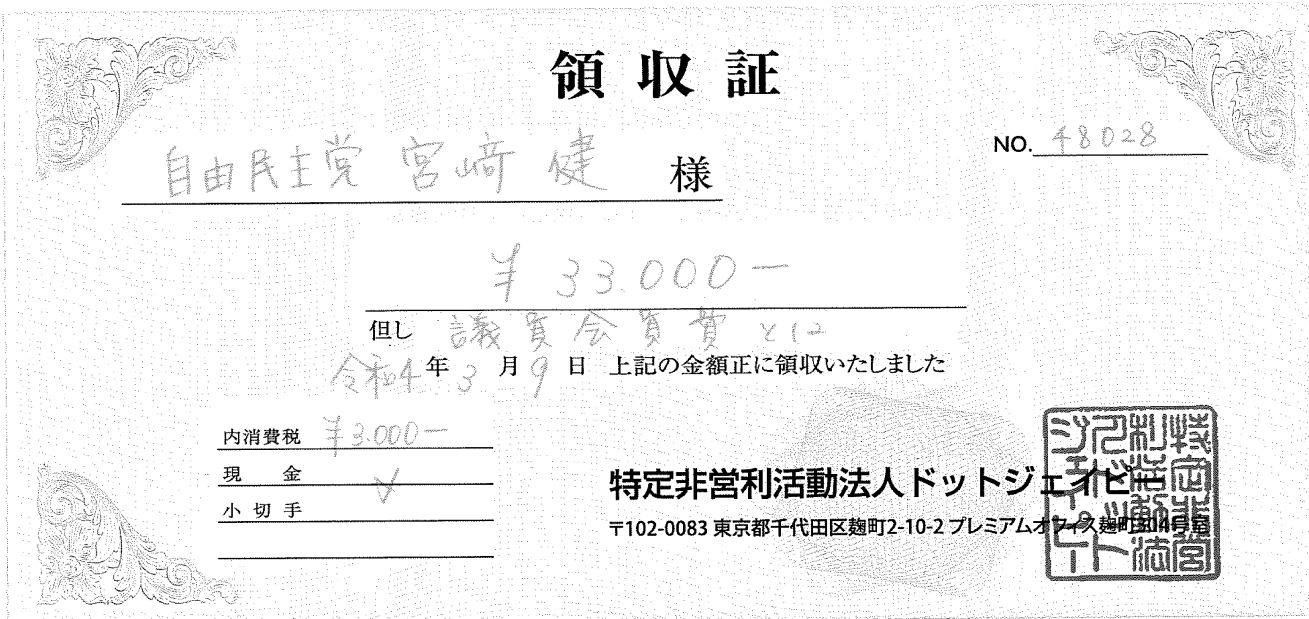 領収証
NO. 48028
自由民主党 宮﨑 健 様
¥33.000ー
但し 議員会員費として
令和4年3月9日 上記の金額正に領収いたしました
内消費税 ¥3.000ー
現金 ✓
小切手
特定非営利活動法人ドットジェイピー
〒102-0083 東京都千代田区麹町2-10-2 プレミアムオフィス麹町304号室
特定非営利活動法人ドットジェイピー